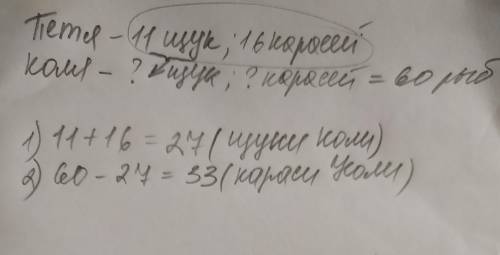 Петя - 11 щук; 16 карасей
Коля - ? щук; ? карасей = 60 рыб
1) 11 + 16 = 27 (щуки Коли)
2) 60 - 27 = 33 (караси Коли)